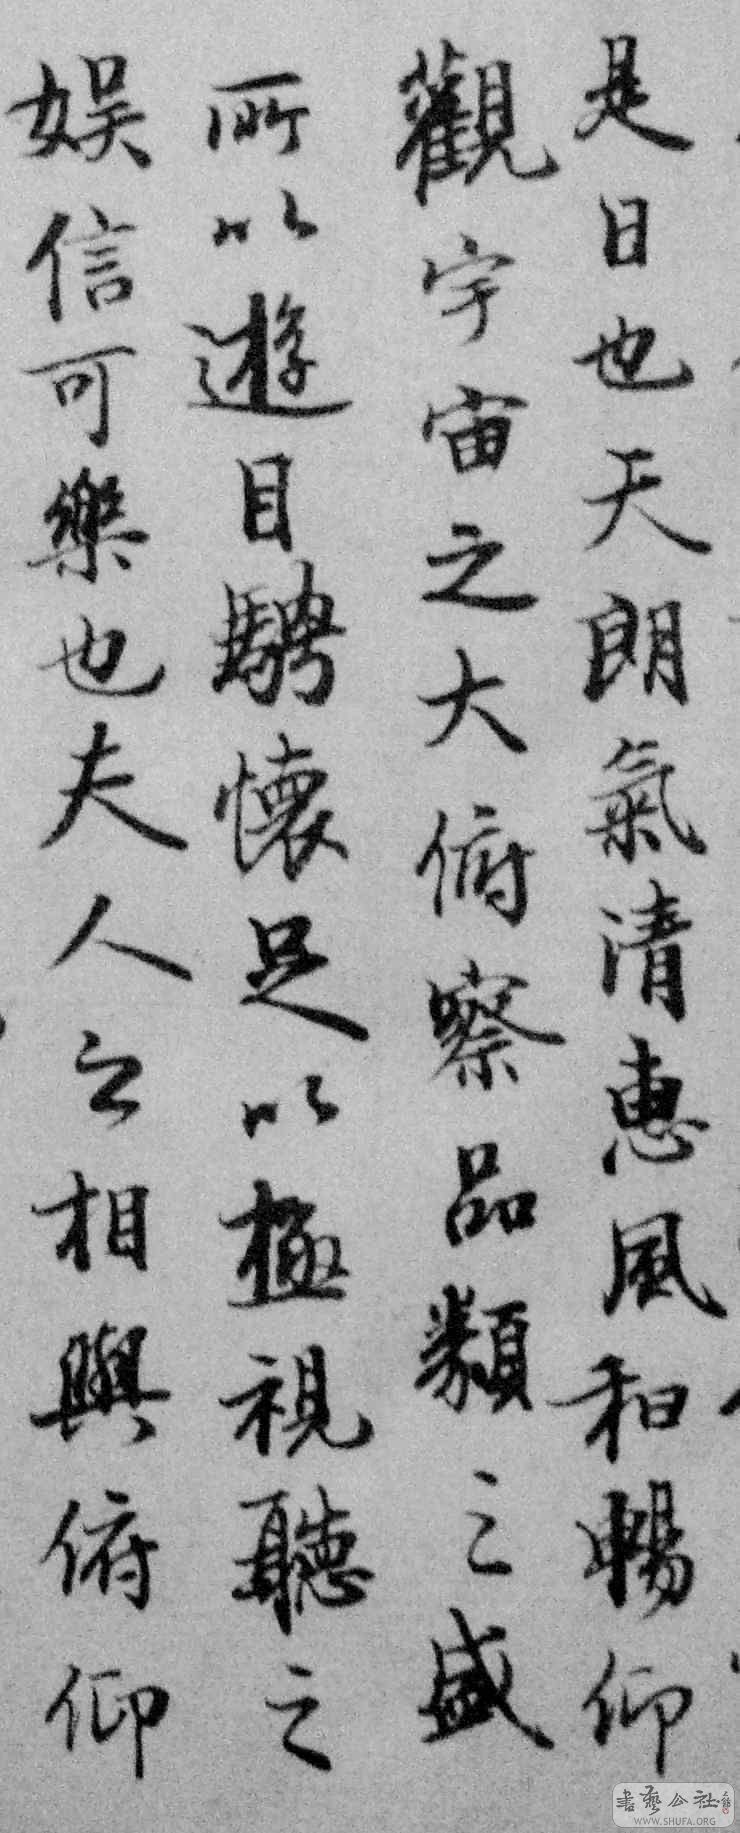 是日也天朗氣清惠風和暢仰
觀宇宙之大俯察品類之盛
所以遊目騁懷足以極視聽之
娛信可樂也夫人之相與俯仰
書藝公社
WWW.SHUFA.ORG